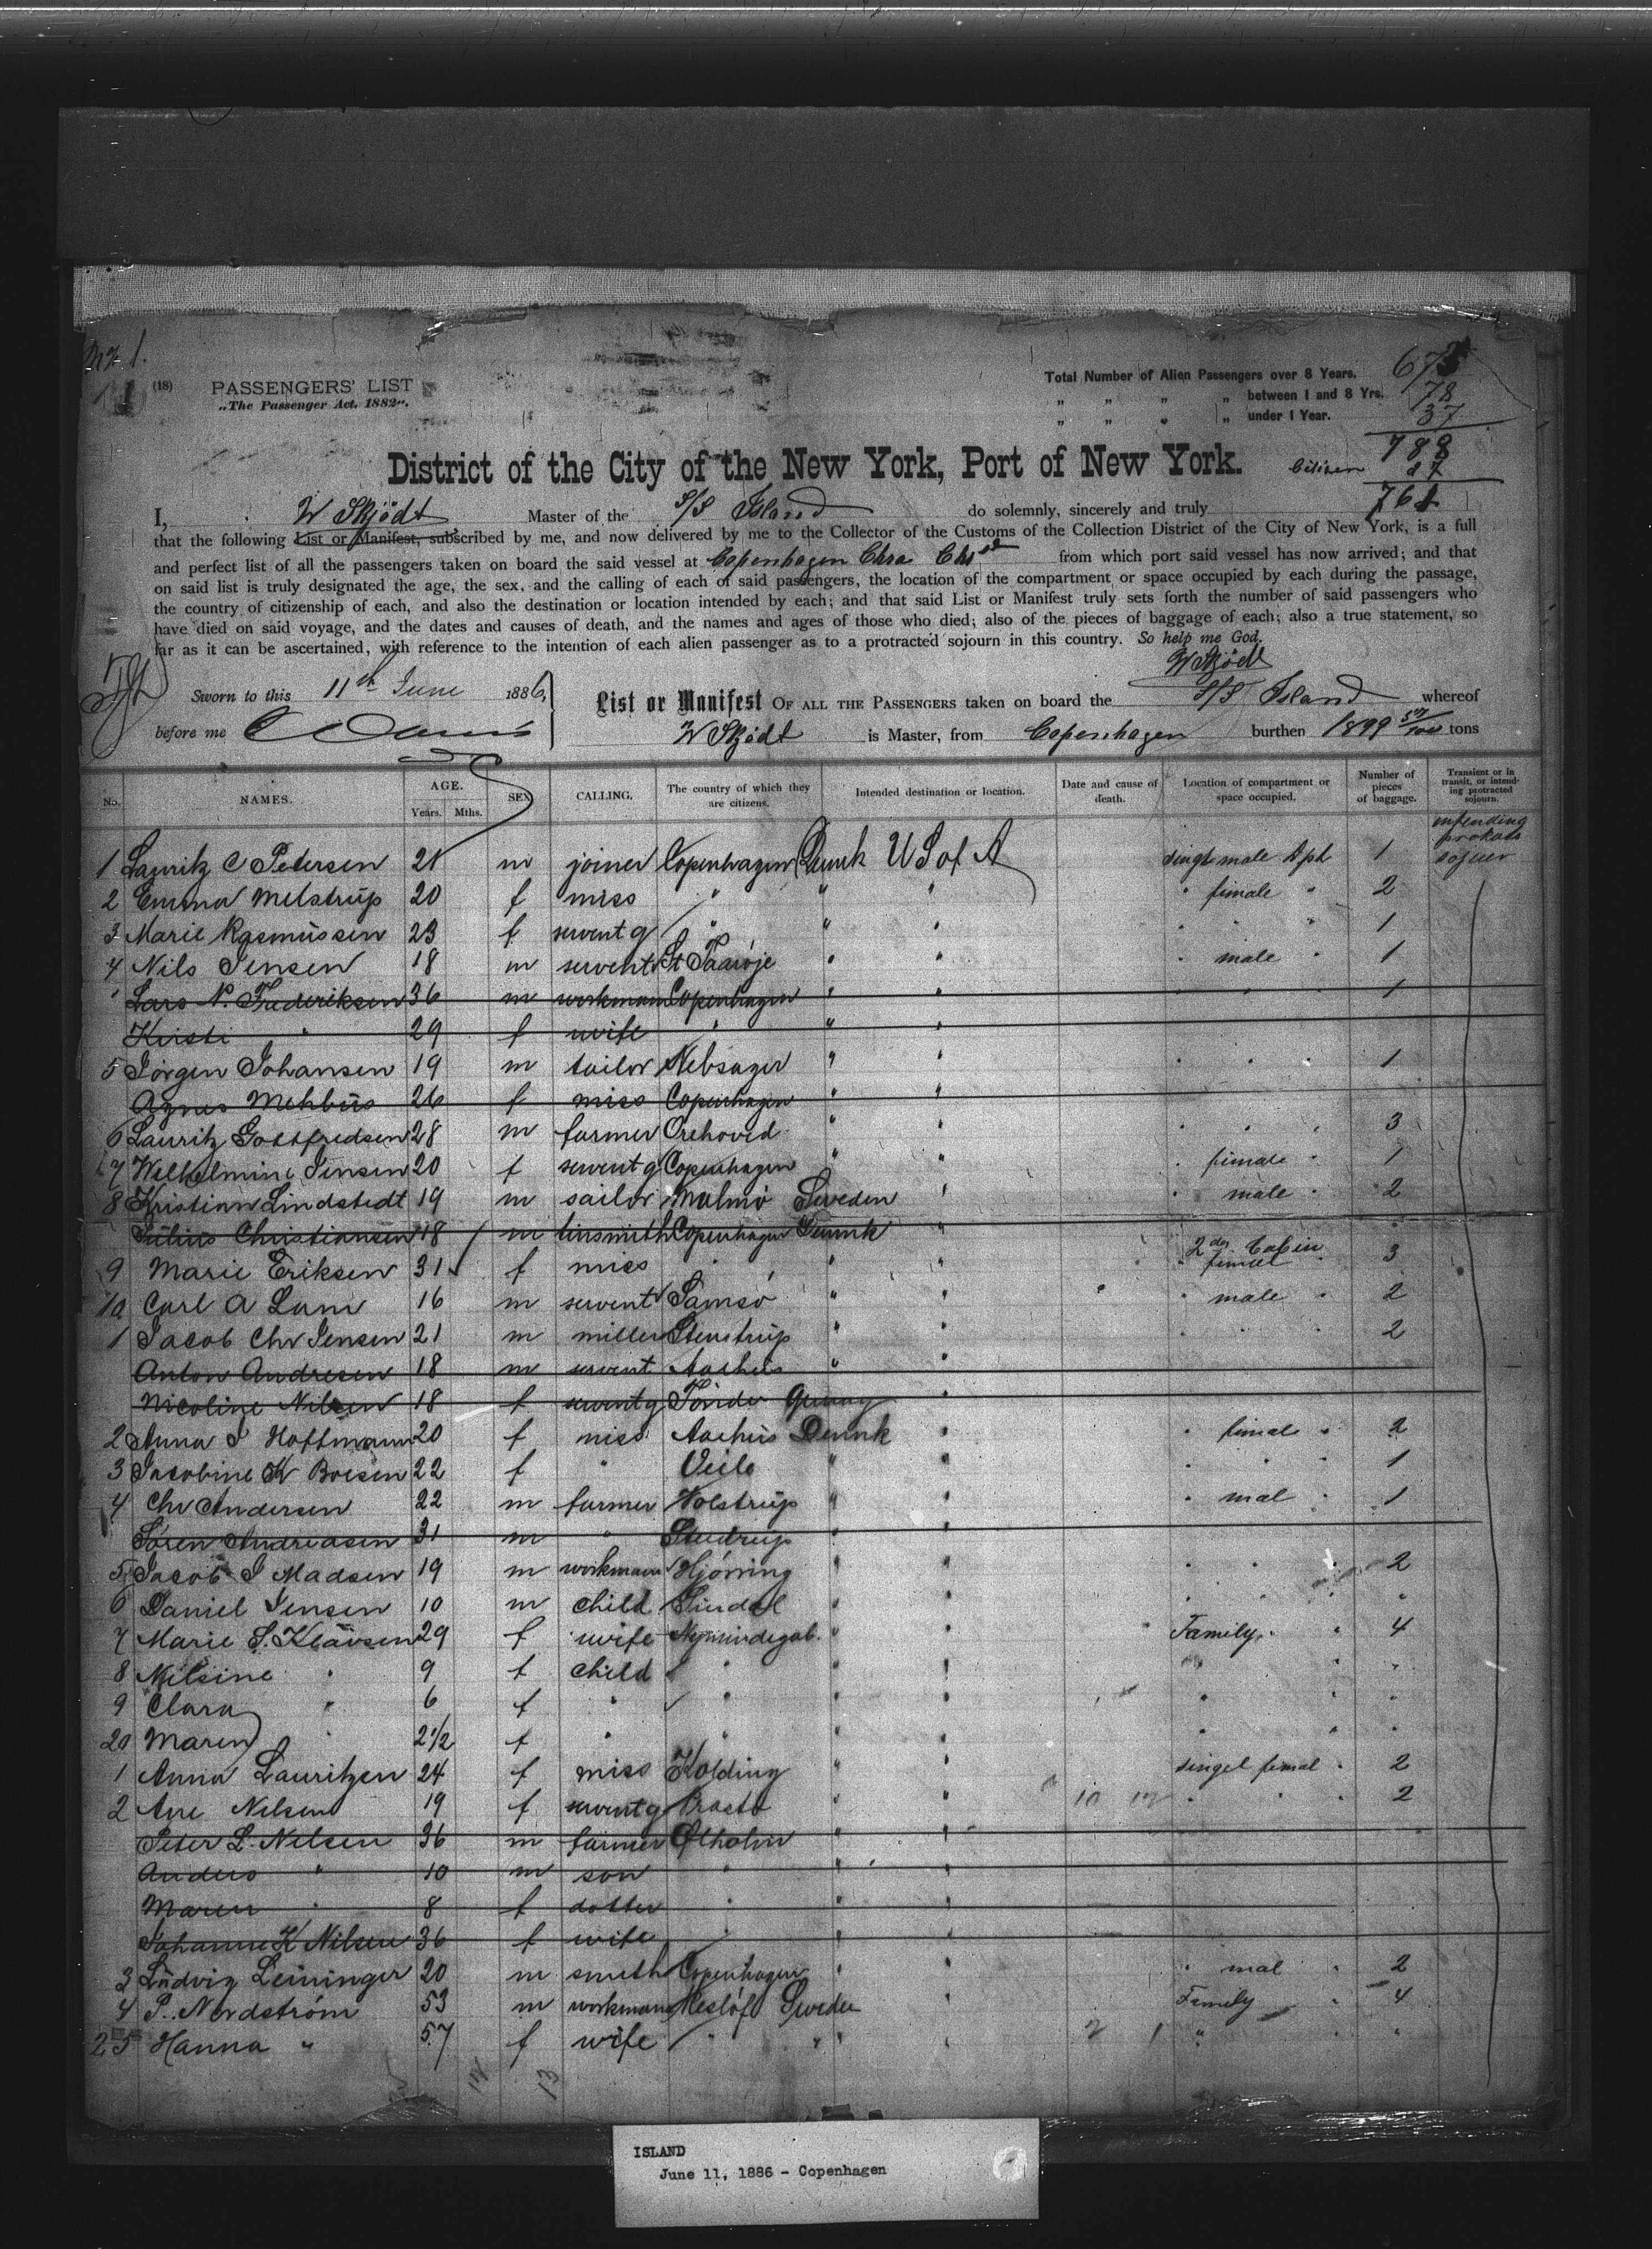 No 1.
(18) PASSENGERS' LIST
„The Passenger Act, 1882".
Total Number of Alien Passengers over 8 Years. 673
„ „ „ „ between 1 and 8 Yrs. 78
„ „ „ „ under 1 Year. 37
788
District of the City of the New York, Port of New York.
Citizen 27
761
I, W Skjödt Master of the S/S Island do solemnly, sincerely and truly
that the following List or Manifest, subscribed by me, and now delivered by me to the Collector of the Customs of the Collection District of the City of New York, is a full
and perfect list of all the passengers taken on board the said vessel at Copenhagen Chra Chrs from which port said vessel has now arrived; and that
on said list is truly designated the age, the sex, and the calling of each of said passengers, the location of the compartment or space occupied by each during the passage,
the country of citizenship of each, and also the destination or location intended by each; and that said List or Manifest truly sets forth the number of said passengers who
have died on said voyage, and the dates and causes of death, and the names and ages of those who died; also of the pieces of baggage of each; also a true statement, so
far as it can be ascertained, with reference to the intention of each alien passenger as to a protracted sojourn in this country. So help me God.
W Skjödt
Sworn to this 11th June 1886,
before me
List or Manifest OF ALL THE PASSENGERS taken on board the S/S Island whereof
W Skjödt is Master, from Copenhagen burthen 1899 57/100 tons
No. NAMES. AGE. Years. Mths. SEX CALLING. The country of which they are citizens. Intended destination or location. Date and cause of death. Location of compartment or space occupied. Number of pieces of baggage. Transient or in transit, or intending protracted sojourn.
1 Lauritz C Petersen 21 m joiner Copenhagen Denmk U S of A singl male Apt 1 intending
2 Emma Melstrup 20 f miss " " " " female " 2
3 Marie Rasmussen 23 f servent g " " " " " " 1
4 Nils Jensen 18 m servent St Taaröje " " " male " 1
Lars N. Frederiksen 36 m workman Copenhagen " " " " " 1
Kirsti " 29 f wife " " "
5 Jörgen Johansen 19 m tailor Nebsager " " " " " 1
Agnes Mehbus 26 f miss Copenhagen " "
6 Lauritz Gottfredsen 28 m farmer Orehoved " " " " " 3
7 Wilhelmine Jensen 20 f servent g Copenhagen " " " female " 1
8 Kristian Lindstedt 19 m sailor Malmö Sweden " " male " 2
Julius Christiansen 18 m tinsmith Copenhagen Denmk "
9 Marie Eriksen 31 f miss " " " 2den Cabin 3
10 Carl A Lam 16 m servent Samsö " " " male " 2
1 Jacob Chr Jensen 21 m miller Stenstrup " " " " " 2
Anton Andresen 18 m servent Aarhus " "
Nicoline Nilsen 18 f servent g Tönder "
2 Anna J Hoffmann 20 f miss Aarhus Denmk " " femal " 2
3 Jacobine K Boesen 22 f " Veile " " " " " 1
4 Chr Andersen 22 m farmer Holstrup " " " mal " 1
Sören Andreasen 31 m " " "
5 Jacob J Madsen 19 m workman Hjörring " " " " " 2
6 Daniel Jensen 10 m child Sindal " " " " " "
7 Marie S. Klausen 29 f wife Nymindegab. " " Family " 4
8 Nilsine " 9 f child " " " " " "
9 Clara " 6 f " " " " " " "
20 Maren " 2 1/2 f " " " " " " "
1 Anna Lauritzen 24 f miss Kolding " " singel femal " 2
2 Ane Nilsen 19 f servent g Prastö " " 10 " " " 2
Peter L. Nilsen 36 m farmer " "
Anders " 10 m son " " "
Maren " 8 f dotter " " "
Johanne K Nilsen 36 f wife " " "
3 Ludvig Leininger 20 m smith Copenhagen " " " mal " 2
4 P. Nordström 53 m workman Sweden " Family " 4
25 Hanna " 57 f wife " " " " 2 1 " " "
ISLAND
June 11, 1886 - Copenhagen